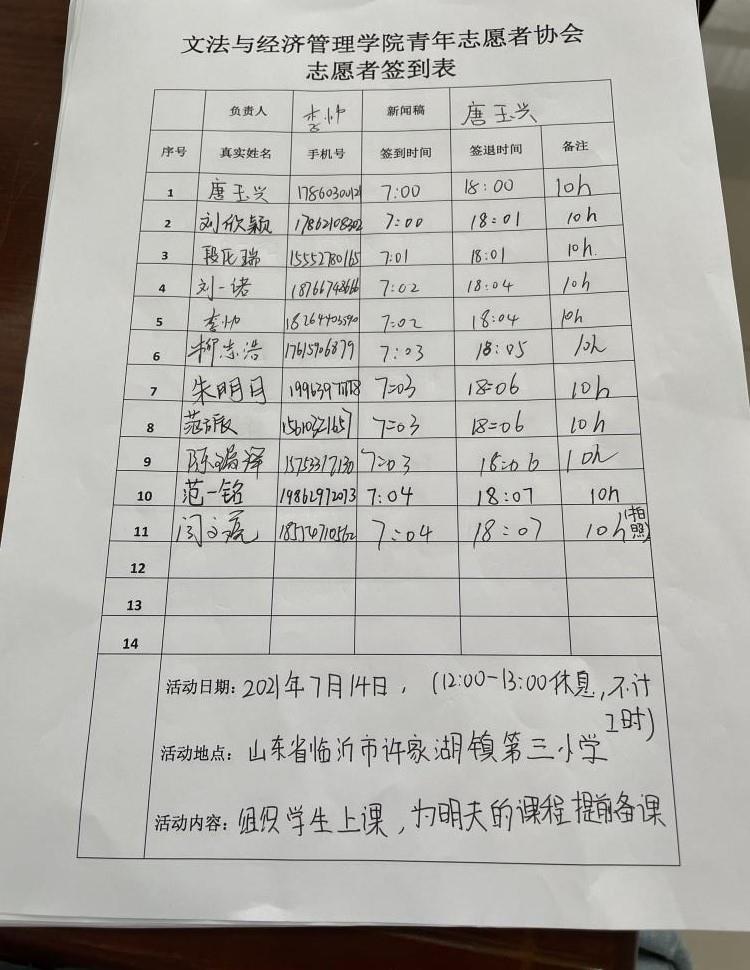 文法与经济管理学院青年志愿者协会
志愿者签到表
负责人 李帅 新闻稿 唐玉兴
序号 真实姓名 手机号 签到时间 签退时间 备注
1 唐玉兴 7:00 18:00 10h
2 刘欣颖 17862108302 7:00 18:01 10h
3 段氏瑞 15552780165 7:01 18:01 10h.
4 刘一诺 7:02 18:04 10h
5 李帅 7:02 18:04 10h
6 柳志浩 17615906879 7:03 18:05 10h
7 朱明月 7:03 18:06 10h
8 7:03 18:06 10h
9 陈瑞泽 15753317130 7:03 18:06 10h
10 范一铭 19862972073 7:04 18:07 10h
11 闫文亮 18574710562 7:04 18:07 10h(拍照)
12
13
14
活动日期:2021年7月14日,(12:00-13:00休息,不计
工时)
活动地点:山东省临沂市许家湖镇第三小学
活动内容:组织学生上课,为明天的课程提前备课